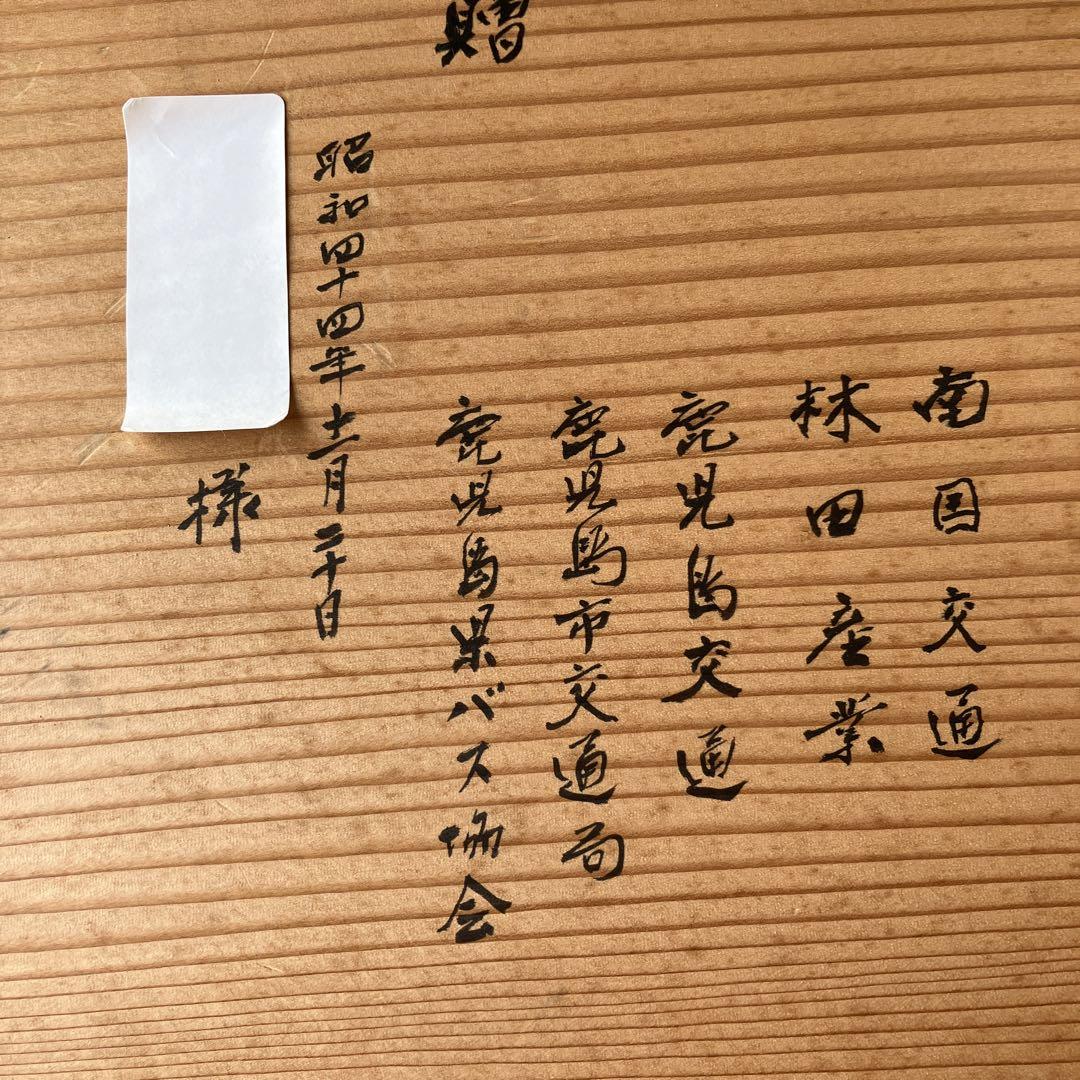 贈
南国交通
林田産業
鹿児島交通
鹿児島市交通局
鹿児島県バス協会
昭和四十四年十二月二十日
様